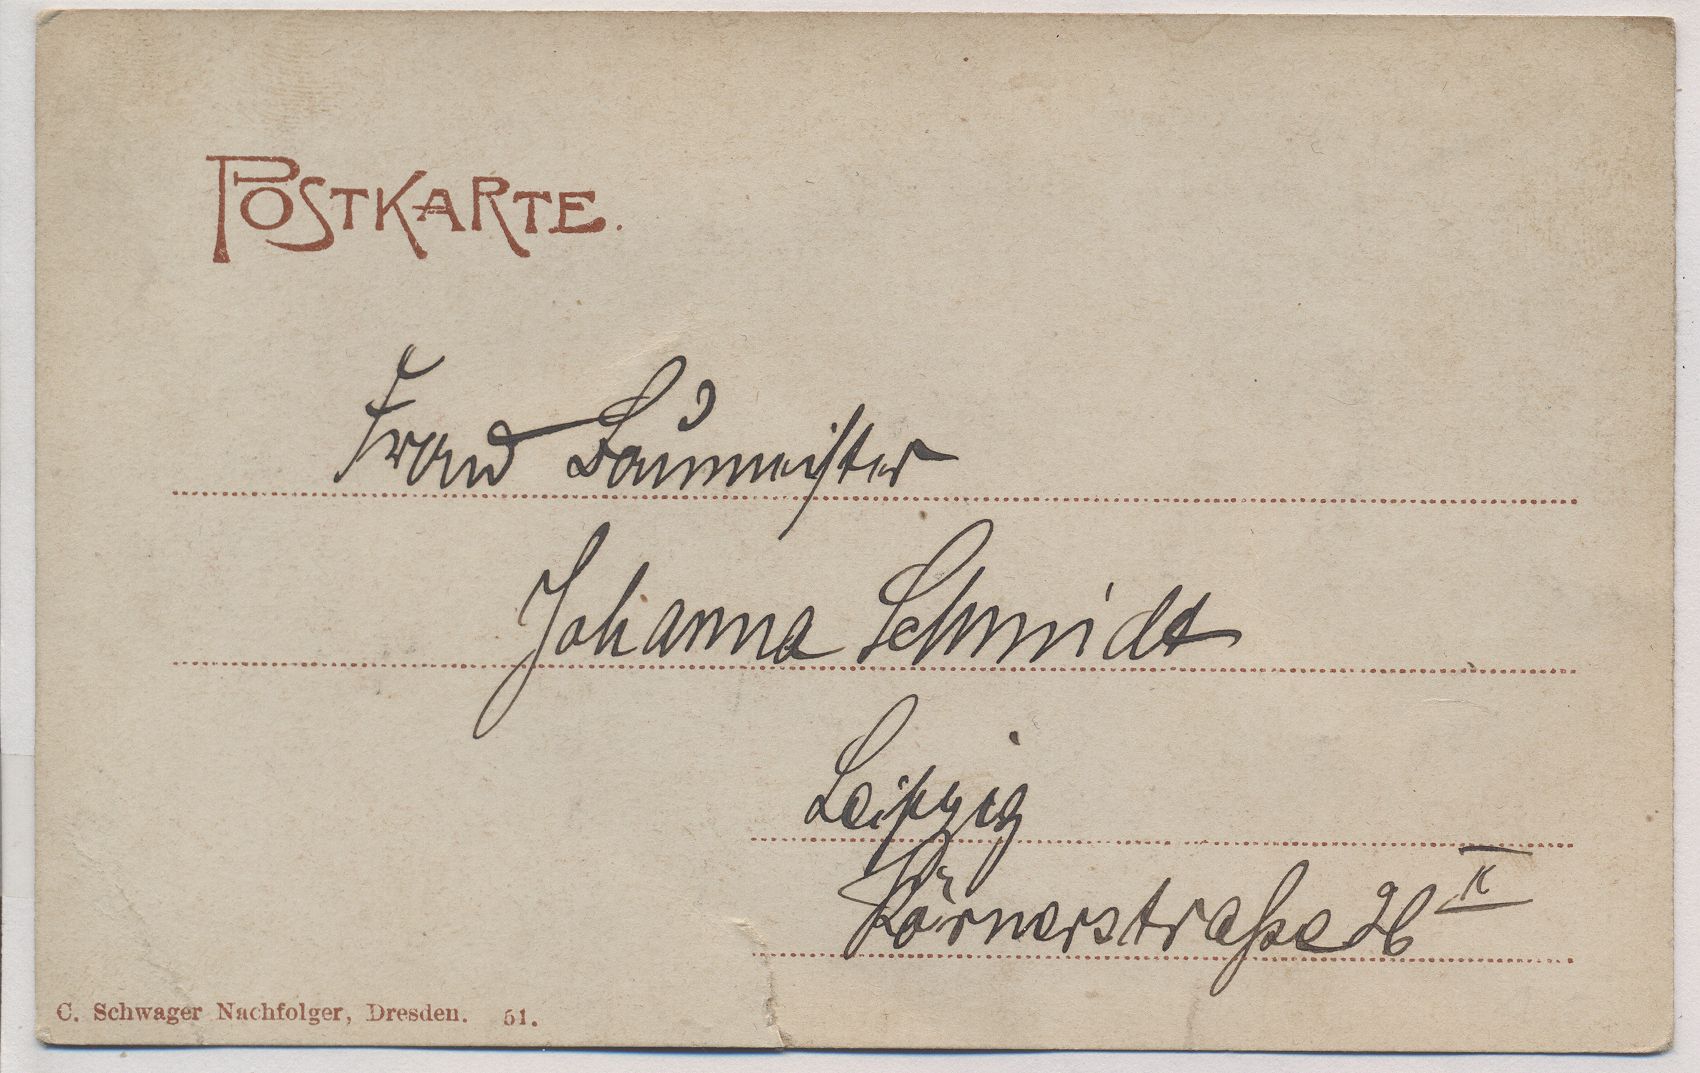 POSTKARTE.
Frau Baumeister
Johanna Schmidt
Leipzig
Körnerstraße 26 II
C. Schwager Nachfolger, Dresden. 51.